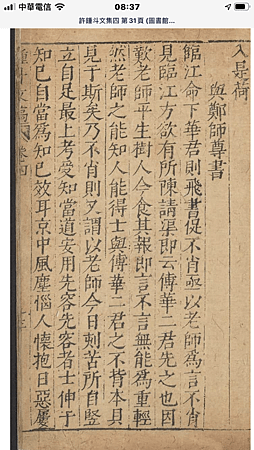 中華電信
08:37
許鍾斗文集四 第31頁 (圖書館...
入是荷
與鄭師尊書
臨江命下華君則飛書促不肖亟以老師為言不肖
見臨江方欲有所陳請渠即云傅華二君先之也因
歎老師平生樹人今食其報即言不言無能為重輕
然老師之能知人能得士與傅華二君之不背本具
見于斯矣乃不肖則又謂以老師今日刻苦所自竪
立自足最上考受知當道安用先容先容者士伸于
知已自當為知已效耳京中風塵惱人懷抱日惡屢